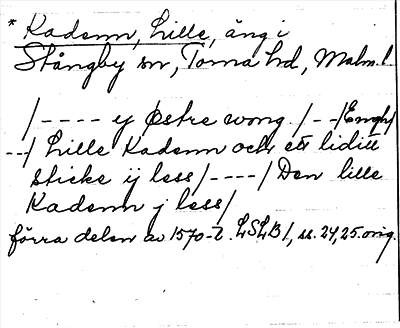 * Kadenn, Lille, äng i
Stångby sn, Torna hd, Malm.l.
/---- ij Østre wong. /--/Engh/
--/ Lille Kadenn och ett liditt
sticke ij less/----/ Den lille
Kadenn j less/
förra delen av 1570-t. LSLB1, ss. 24, 25. orig.